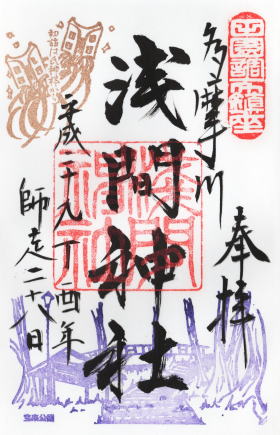 田園調布鎮座
奉拝
多摩川
浅間神社
浅間神社
平成二十九丁酉年
師走二十八日
宝来公園